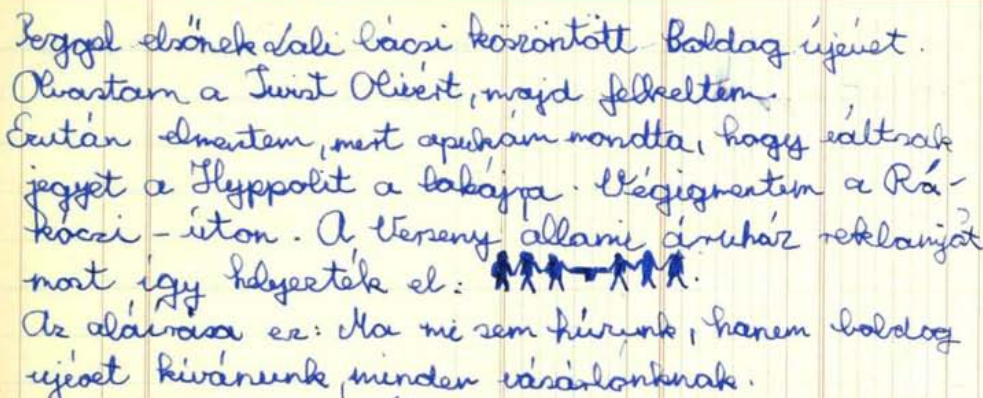 Reggel elsőnek Lali bácsi köszöntött Boldog újévet.
Olvastam a Twist Olivért, majd felkeltem.
Ezután elmentem, mert apukám mondta, hogy váltsak
jegyet a Hyppolit a lakájra. Végigmentem a Rá-
kóczi-úton. A Verseny állami áruház reklámját
most így helyezték el:
Az aláírása ez: Ma mi sem húzunk, hanem boldog
újévet kívánunk, minden vásárlónknak.